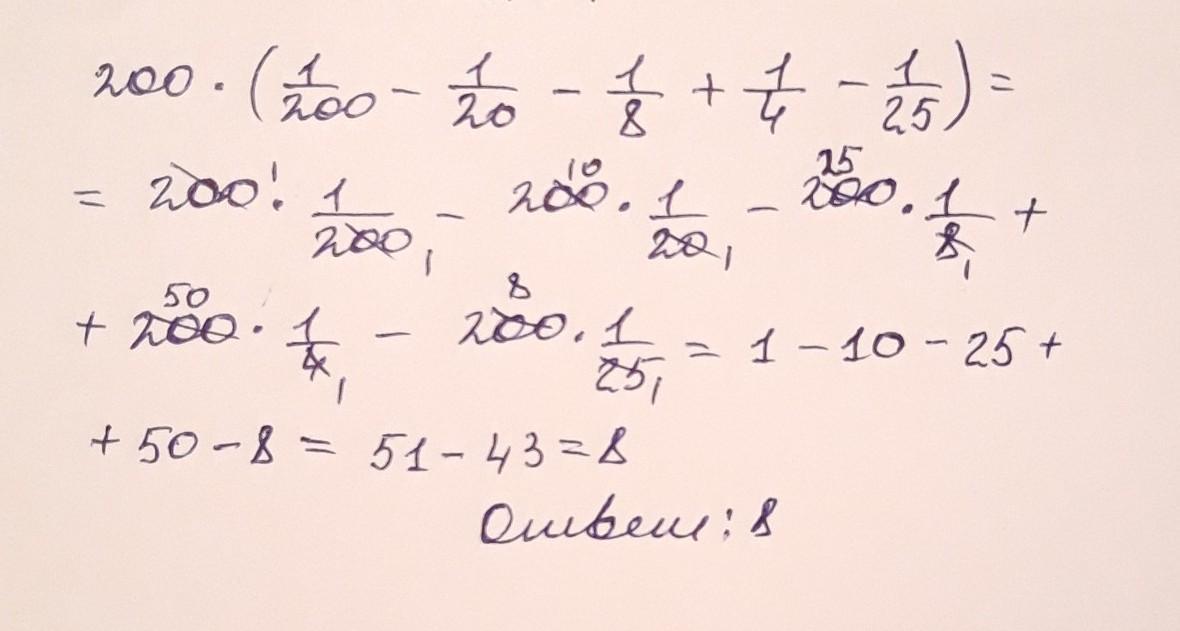 200 · (1/200 - 1/20 - 1/8 + 1/4 - 1/25) =
= 200¹ · 1/200₁ - 200¹⁰ · 1/20₁ - 200²⁵ · 1/8₁ +
+ 200⁵⁰ · 1/4₁ - 200⁸ · 1/25₁ = 1 - 10 - 25 +
+ 50 - 8 = 51 - 43 = 8
Ответ: 8